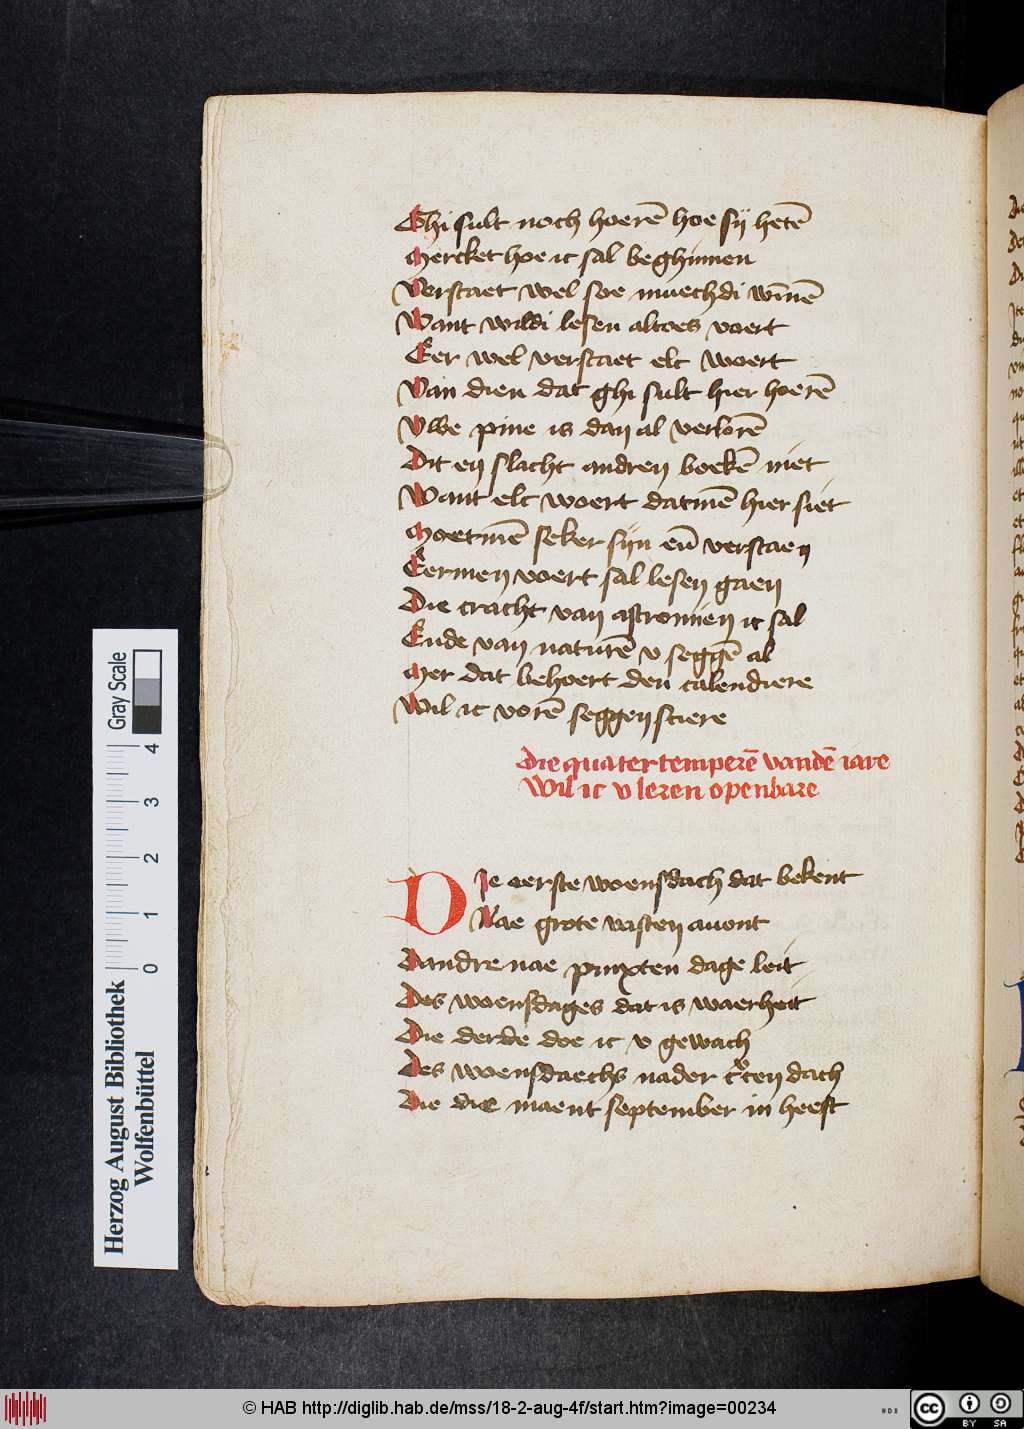 Ghi sult noch hoerē hoe sij hetē
Mercket hoe ic sal beghinnen
Verstaet wel soe muechdi wīnē
Want wildi lesen altoes voert
Eer wel verstaet elc woert
Van dien dat ghi sult hier hoerē
Uwe pine is dan al verlorē
Dit en slacht andren boekē niet
Want elc woert datmē hier siet
Moetmē seker sijn eñ verstaen
Eermen voert sal lesen gaen
Die cracht van astronmien ic sal
Ende van naturē v seggē al
Mer dat behoert den calendiere
Wil ic vorē seggen sciere
Die quatertemperē vandē iare
Wil ic v leren openbare
Die eerste woensdach dat bekent
Nae grote vasten auont
Dandre nae pinxten dage leit
Des woensdages dat is waerheit
Die derde doe ic v gewach
Des woensdaechs nader cten dach
Die die maent september in heeft
Herzog August Bibliothek
Wolfenbüttel
Gray Scale
0 1 2 3 4
© HAB http://diglib.hab.de/mss/18-2-aug-4f/start.htm?image=00234
cc BY SA